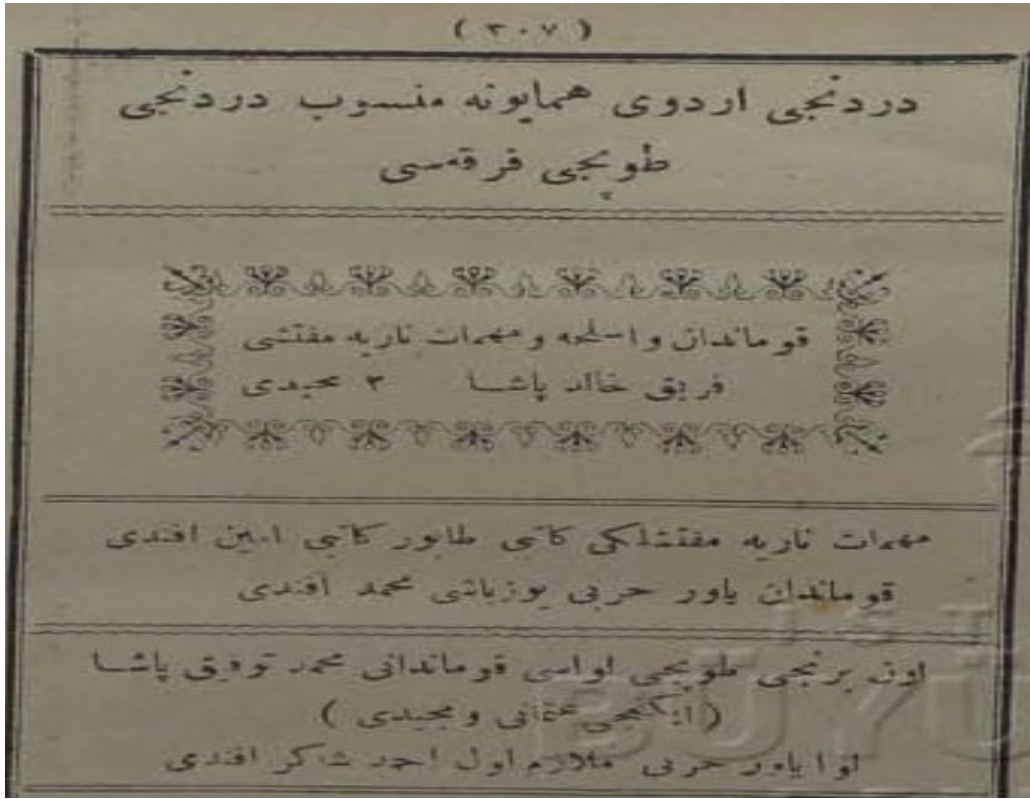 ( ٣٠٧ )
دردنجى اردوى همايونه منسوب دردنجى
طوپجى فرقه‌سى
قوماندان و اسلحه و مهمات ناريه مفتشى
فريق خالد پاشا ٣ مجيدى
مهمات ناريه مفتشلكى كاتبى طابور كاتبى امين افندى
قوماندان ياور حربى يوزباشى محمد افندى
اون برنجى طوپجى لواسى قوماندانى محمد توفيق پاشا
( ايكنجى عثمانى و مجيدى )
لوا ياور حربى ملازم اول احمد شاكر افندى
BÜYÜ